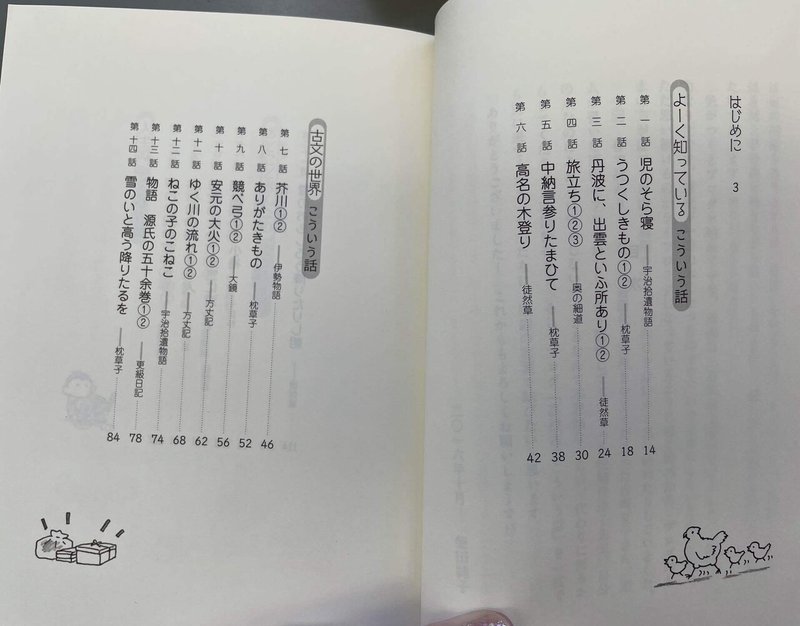 はじめに 3
よーく知っている こういう話
第一話 児のそら寝 ──宇治拾遺物語 14
第二話 うつくしきもの①② ──枕草子 18
第三話 丹波に、出雲といふ所あり①② ──徒然草 24
第四話 旅立ち①②③ ──奥の細道 30
第五話 中納言参りたまひて ──枕草子 38
第六話 高名の木登り ──徒然草 42
古文の世界 こういう話
第七話 芥川①② ──伊勢物語 46
第八話 ありがたきもの ──枕草子 52
第九話 競べ弓①② ──大鏡 56
第十話 安元の大火①② ──方丈記 62
第十一話 ゆく川の流れ①② ──方丈記 68
第十二話 ねこの子のこねこ ──宇治拾遺物語 74
第十三話 物語 源氏の五十余巻①② ──更級日記 78
第十四話 雪のいと高う降りたるを ──枕草子 84